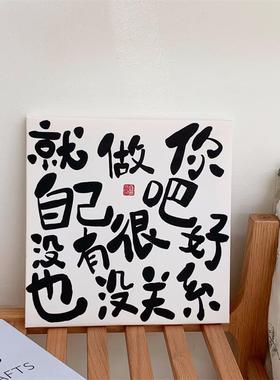 就做你
自己吧
没有很好
也没关系
AFTS